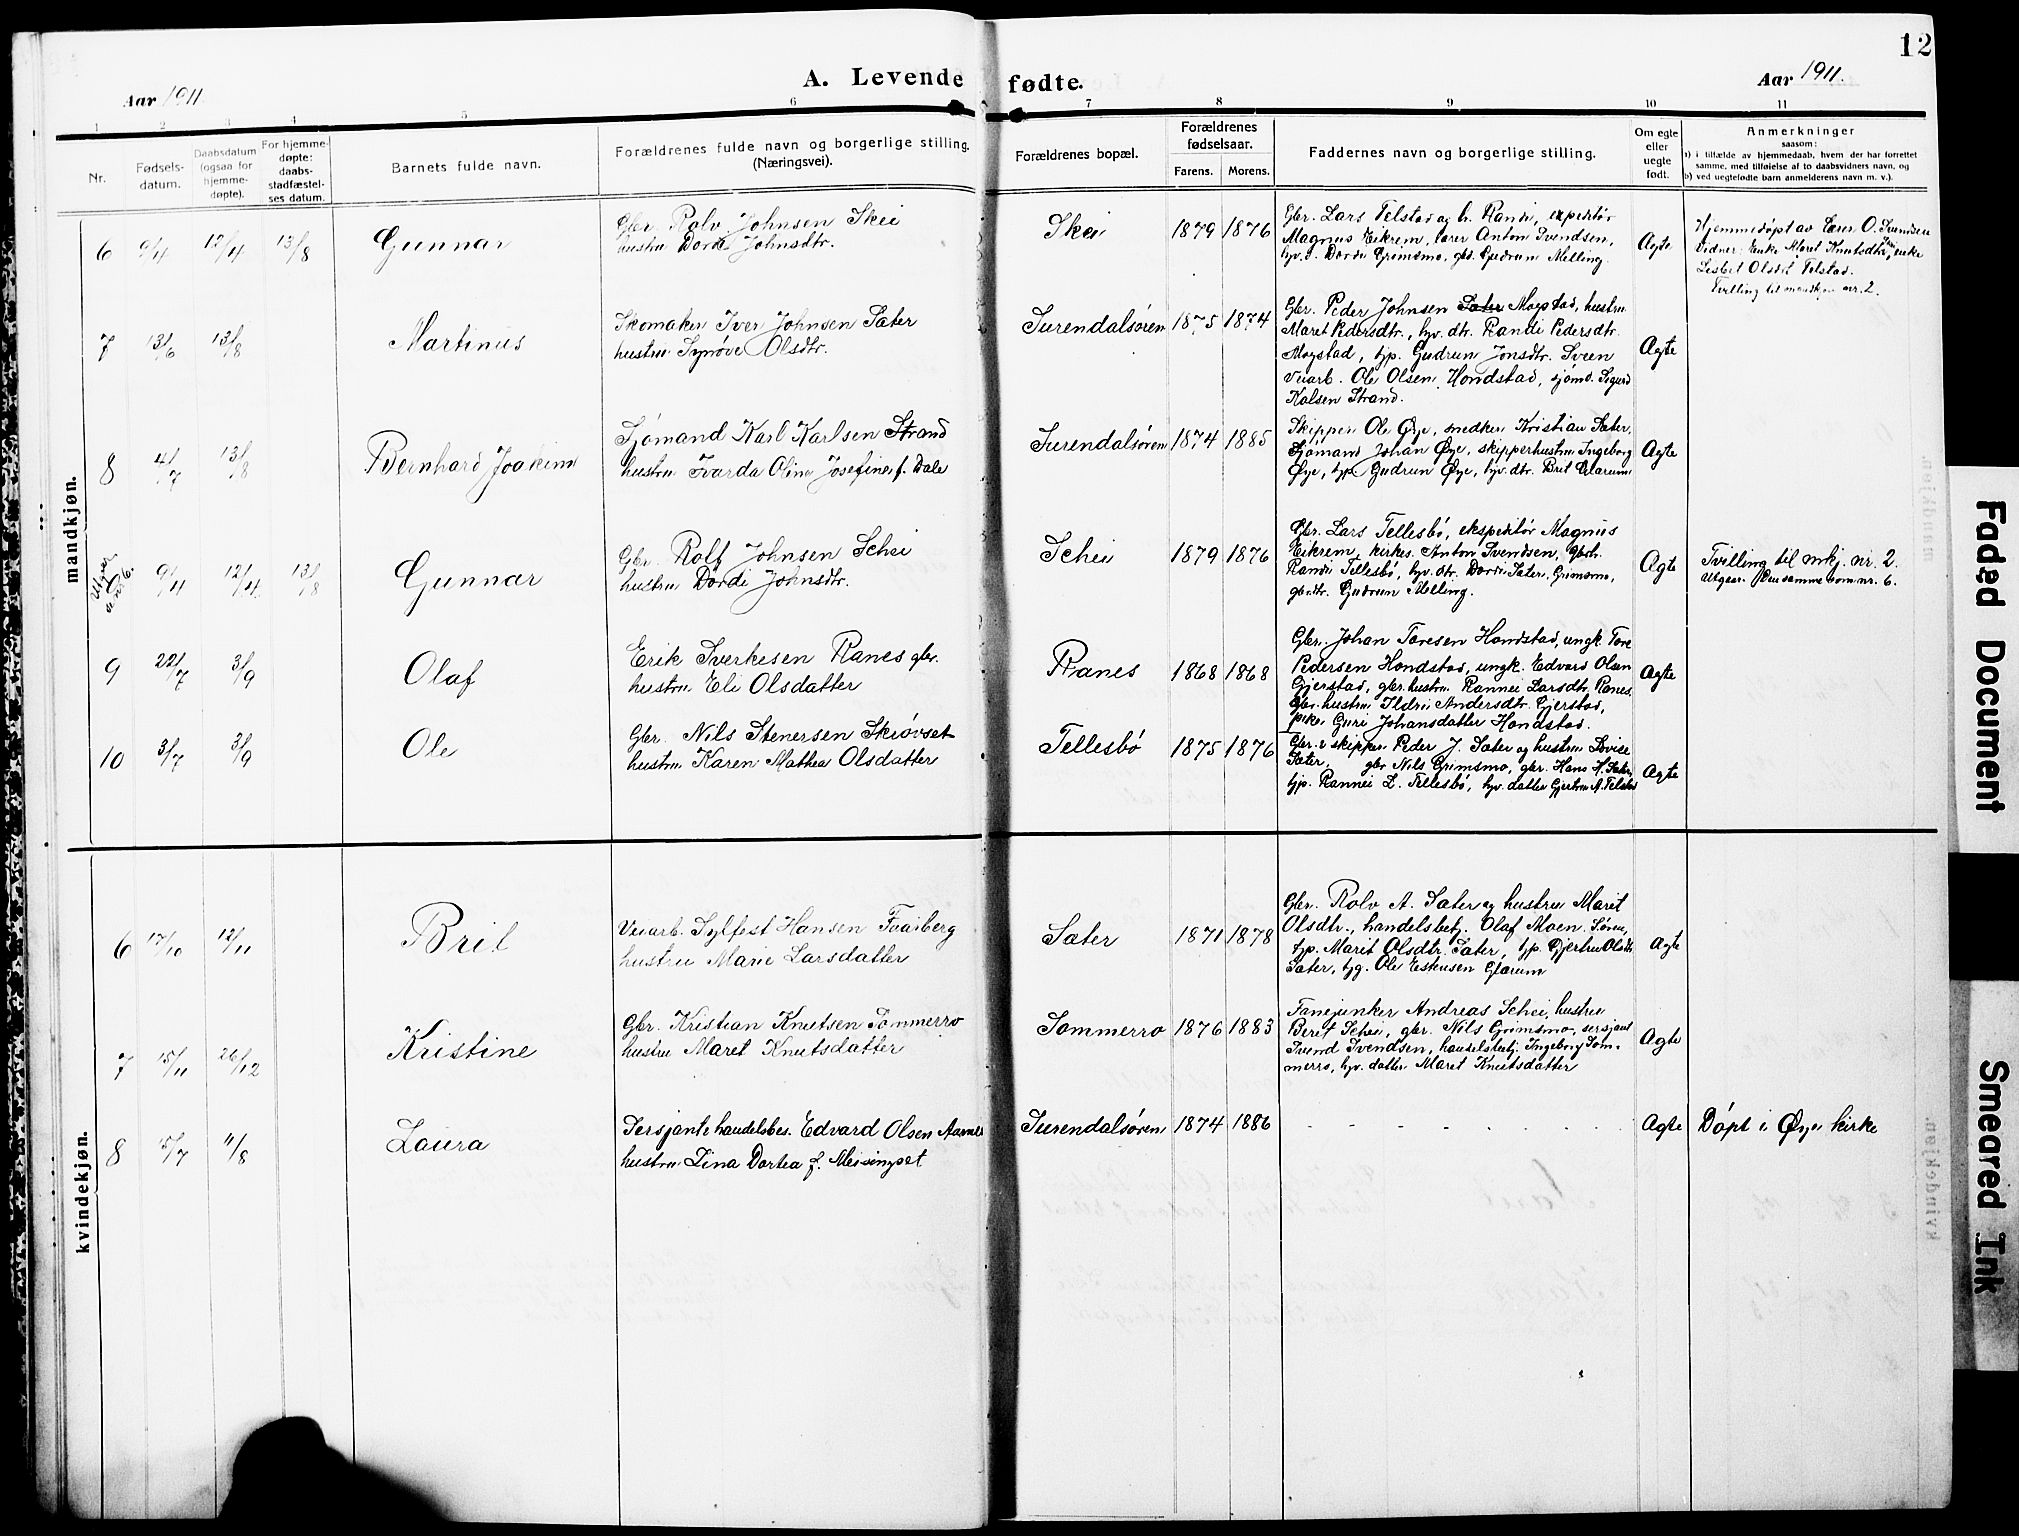 12
A. Levende fødte.
Aar 1911.
Aar 1911.
1 2 3 4 5 6 7 8 9 10 11
Nr.
Fødsels-
datum.
Daabsdatum
(ogsaa for
hjemme-
døpte).
For hjemme-
døpte:
daabs-
stadfæstel-
ses datum.
Barnets fulde navn.
Forældrenes fulde navn og borgerlige stilling.
(Næringsvei).
Forældrenes bopæl.
Forældrenes
fødselsaar.
Farens. Morens.
Faddernes navn og borgerlige stilling.
Om egte
eller
uegte
født.
Anmerkninger
saasom:
a) i tilfælde av hjemmedaab, hvem der har forrettet
samme, med tilføielse af to daabsvidners navn, og
b) ved uegtefødte barn anmelderens navn m. v.).
mandkjøn.
6 9/4 12/4 13/8 Gunnar
Gbr. Rolv Johnsen Skei
hustru Dordi Johnsdtr.
Skei 1879 1876
Gbr. Lars Telstad og h. Randi, expeditør
Magnus Eikrem, lærer Anton Svendsen,
hv.d. Dordi Grimsmo, gbd. Gudrun Melling.
Ægte
Hjemmedøpt av Lærer O.
Vidner: Enke Maret Knutsdtr, enke
Lisbet Olsdtr Telstad.
Tvilling til mandkjøn nr. 2.
7 13/6 13/8 Martinus
Skomaker Iver Johnsen Sæter
hustru Synøve Olsdtr.
Surendalsøren 1875 1874
Gbr. Peder Johnsen Sæter Mogstad, hustru
Maret Pedersdtr., hv. dtr. Randi Pedersdtr.
Mogstad, tjp. Gudrun Jonsdtr. Sveen
Veiarb. Ole Olsen Hondstad, sjømd. Sigurd
Kalsen Strand.
Ægte
8 4/7 13/8 Bernhard Joakim
Sjømand Karl Karlsen Strand
hustru Ivarda Oline Josefine f. Dale
Surendalsøren 1874 1885
Skipper Ole Øye, snedker Kristian Sæter,
Sjømand Johan Øye, skipperhustru Ingeborg
Øye, tjp. Gudrun Øye, hv. dtr. Brit Glærum
Ægte
Utgaar
se nr 6.
9/4 12/4 13/8 Gunnar
Gbr. Rolf Johnsen Schei
hustru Dordi Johnsdtr.
Schei 1879 1876
Gbr. Lars Tellesbø, ekspeditør Magnus
Eikrem, kirkes. Anton Svendsen, gbrh.
Randi Tellesbø, hv. dtr. Dordi Sæter, Grimsmo,
gbr.dtr. Gudrun Melling.
Ægte
Tvilling til mkj. nr. 2.
Utgaar. Den samme som nr. 6.
9 22/7 3/9 Olaf
Erik Sverkesen Ranes gbr.
hustru Eli Olsdatter
Ranes 1868 1868
Gbr. Johan Toresen Hondstad, ungk. Tore
Pedersen Hondstad, ungk. Edvard Olsen
Gjerstad, gbr.hustru Rannei Larsdtr. Ranes.
Gbr. hustru Ildri Andersdtr. Gjerstad,
pike Guri Johansdatter Hondstad.
Ægte
10 3/7 3/9 Ole
Gbr. Nils Stenersen Skrøvset
hustru Karen Mathea Olsdatter
Tellesbø 1875 1876
Gbr. & skipper Peder J. Sæter og hustru Lovise
Sæter, gbr Nils Grimsmo, gbr. Hans H. Sæter,
tjp. Rannei L. Tellesbø, hv. datter Gjertru A. Telstad
Ægte
kvindekjøn.
6 17/10 12/11 Brit
Veiarb. Sylfest Hansen Fvaiberg
hustru Marie Larsdatter
Sæter 1871 1878
Gbr. Rolv A. Sæter og hustru Marit
Olsdtr., handelsbetj. Olaf Moen. Søren,
tjp. Marit Olsdtr. Sæter, tjp. Gjertru Olsdtr
Sæter, tjg. Ole Estensen Glærum
Ægte
7 15/11 26/12 Kristine
Gbr. Kristian Knutsen Sommerro
hustru Maret Knutsdatter
Sommerro 1876 1883
Fanejunker Andreas Schei, hustru
Beret Schei, gbr. Nils Grimsmo, sersjant
Svend Svendsen, handelsbetj. Ingeborg Som-
merro, hv. datter Maret Knutsdatter
Ægte
8 15/7 11/8 Laura
Sersjant & handelsbes. Edvard Olsen Aarnes
hustru Lina Dortea f. Meisingset
Surendalsøren 1874 1886
- - - - - - - - -
Ægte
Døpt i Øye kirke
Faded Document
Smeared Ink